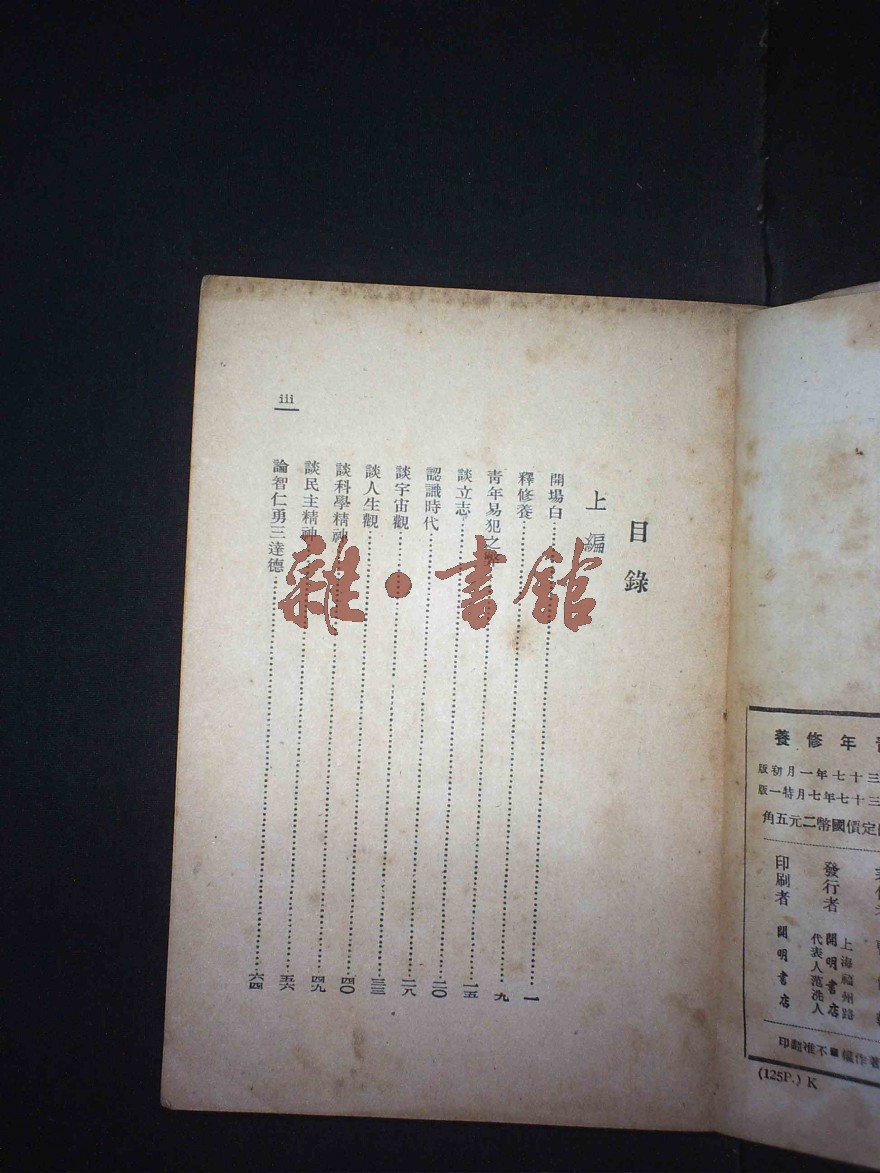 目錄
上編
開場白……一
釋修養……九
靑年易犯之……一五
談立志……二〇
認識時代……二八
談宇宙觀……三三
談人生觀……四〇
談科學精神……四九
談民主精神……五六
論智仁勇三達德……六四
iii
雜·書館
年修養
三十七年一月初版
三十七年七月特一版
定價國幣二元五角
發行者
上海福州路
開明書店
代表人范洗人
印刷者
開明書店
著作權不准翻印
(125P.) K